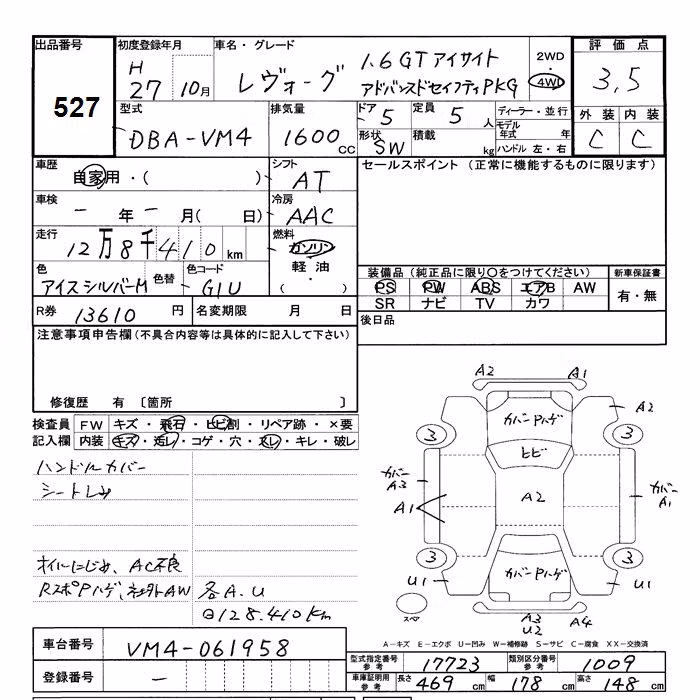 出品番号
527
初度登録年月
H
27 10月
車名・グレード
レヴォーグ
1.6GTアイサイト
アドバンスドセイフティPKG
2WD
4WD
評価点
3,5
型式
DBA-VM4
排気量
1600cc
ドア
5
定員
5人
形状
SW
積載
kg
ディーラー・並行
モデル年式 年
ハンドル 左・右
外装
C
内装
C
車歴
自家用・( )
シフト
AT
セールスポイント(正常に機能するものに限ります)
車検
- 年 - 月( 日)
冷房
AAC
走行
12万8千410km
燃料
ガソリン
軽油
( )
色
アイスシルバーM
色替
色コード
G1U
装備品(純正品に限り○をつけてください)
PS PW ABS エアB AW
SR ナビ TV カワ
新車保証書
有・無
R券
13610円
名変期限 月 日
後日品
注意事項申告欄(不具合内容等は具体的に記入して下さい)
修復歴 有 〔箇所 〕
検査員記入欄
FW キズ・飛石・ヒビ割・リペア跡・×要
内装 キズ・汚レ・コゲ・穴・スレ・キレ・破レ
ハンドルカバー
シートしみ
オイルにじみ、AC不良
RスポPハゲ、社外AW
各A.U
⊖128.410Km
A2 A1
A2
カバーPハゲ
3 3
ヒビ
カバー
A3
A1
A2
カバー
A1
3 3
カバーPハゲ
U1 U1
スペア
A3
U2
A4
A-キズ E-エクボ U-凹み W-補修跡 S-サビ C-腐食 XX-交換済
車台番号
VM4-061958
登録番号
-
型式指定番号
参考
17723
類別区分番号
参考
1009
車庫証明用
参考
長さ 469cm 幅 178cm 高さ 148cm